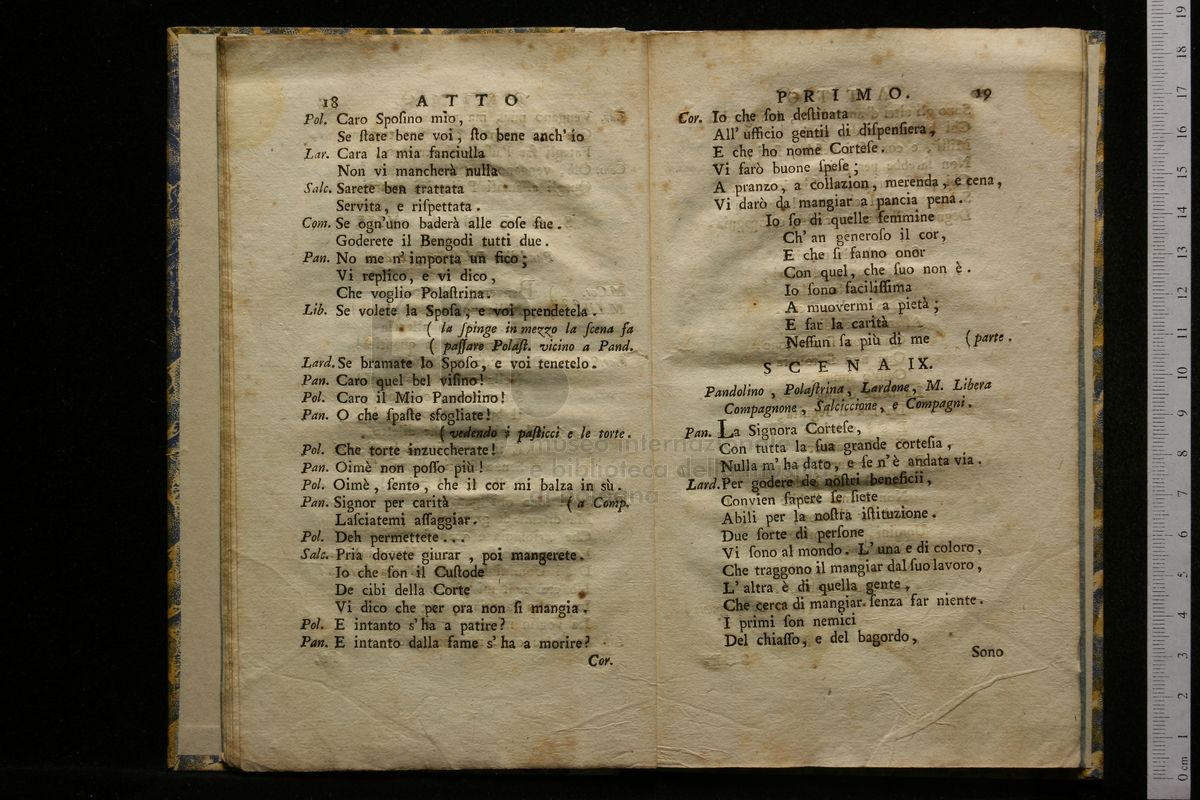 18 ATTO
Pol. Caro Sposino mio,
Se ſtate bene voi, ſto bene anch' io
Lar. Cara la mia fanciulla
Non vi mancherà nulla
Salc. Sarete ben trattata
Servita, e riſpettata.
Com. Se ogn'uno baderà alle coſe ſue.
Goderete il Bengodi tutti due.
Pan. No me n' importa un fico;
Vi replico, e vi dico,
Che voglio Polaſtrina.
Lib. Se volete la Spoſa, e voi prendetela.
( la ſpinge in mezzo la ſcena fa
( paſſare Polaſt. vicino a Pand.
Lard. Se bramate lo Spoſo, e voi tenetelo.
Pan. Caro quel bel viſino!
Pol. Caro il Mio Pandolino!
Pan. O che ſpaſte sfogliate!
( vedendo i paſticci e le torte.
Pol. Che torte inzuccherate!
Pan. Oimè non poſſo più!
Pol. Oimè, ſento, che il cor mi balza in sù.
Pan. Signor per carità ( a Comp.
Laſciatemi aſſaggiar.
Pol. Deh permettete...
Salc. Pria dovete giurar, poi mangerete.
Io che ſon il Cuſtode
De cibi della Corte
Vi dico che per ora non ſi mangia.
Pol. E intanto s' ha a patire?
Pan. E intanto dalla fame s' ha a morire?
Cor.
PRIMO. 19
Cor. Io che ſon deſtinata
All' ufficio gentil di diſpenſiera,
E che ho nome Corteſe.
Vi farò buone ſpeſe;
A pranzo, a collazion, merenda, e cena,
Vi darò da mangiar a pancia pena.
Io ſo di quelle femmine
Ch' an generoſo il cor,
E che ſi fanno onor
Con quel, che ſuo non è.
Io ſono faciliſſima
A muovermi a pietà;
E far la carità
Neſſun ſa più di me (parte.
SCENA IX.
Pandolino, Polaſtrina, Lardone, M. Libera
Compagnone, Salciccione, e Compagni.
Pan. La Signora Corteſe,
Con tutta la ſua grande corteſia,
Nulla m' ha dato, e ſe n'è andata via.
Lard. Per godere de noſtri beneficii,
Convien ſapere ſe ſiete
Abili per la noſtra iſtituzione.
Due ſorte di perſone
Vi ſono al mondo. L' una e di coloro,
Che traggono il mangiar dal ſuo lavoro,
L' altra è di quella gente,
Che cerca di mangiar ſenza far niente.
I primi ſon nemici
Del chiaſſo, e del bagordo,
Sono
museo internazionale
e biblioteca della musica